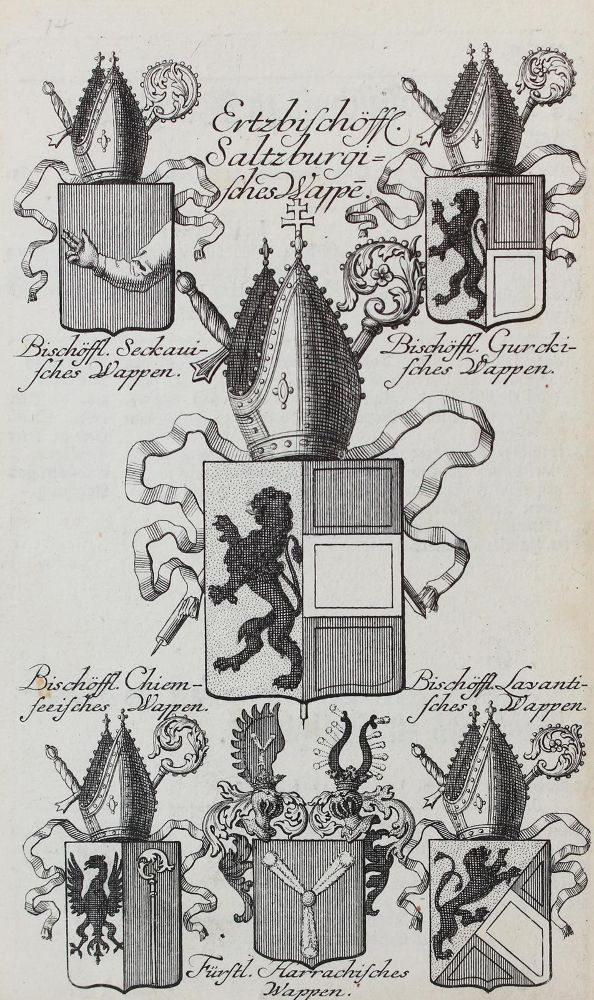 14
Ertzbischöffl.
Saltzburgi=
sches Wappē
Bischöffl. Seckaui-
sches Wappen.
Bischöffl. Gurcki-
sches Wappen.
Bischöffl. Chiem-
seeisches Wappen.
Bischöffl. Lavanti-
sches Wappen.
Fürstl. Harrachisches
Wappen.